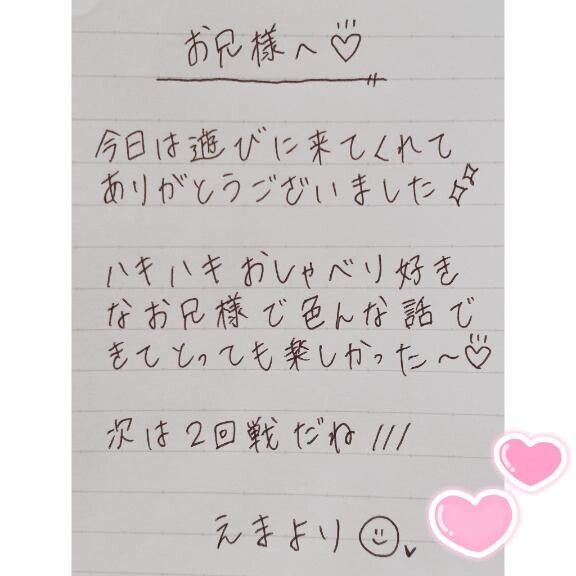 お兄様へ♡
今日は遊びに来てくれて
ありがとうございました
ハキハキおしゃべり好き
なお兄様で色んな話で
きてとっても楽しかった〜♡
次は2回戦だね///
えまより